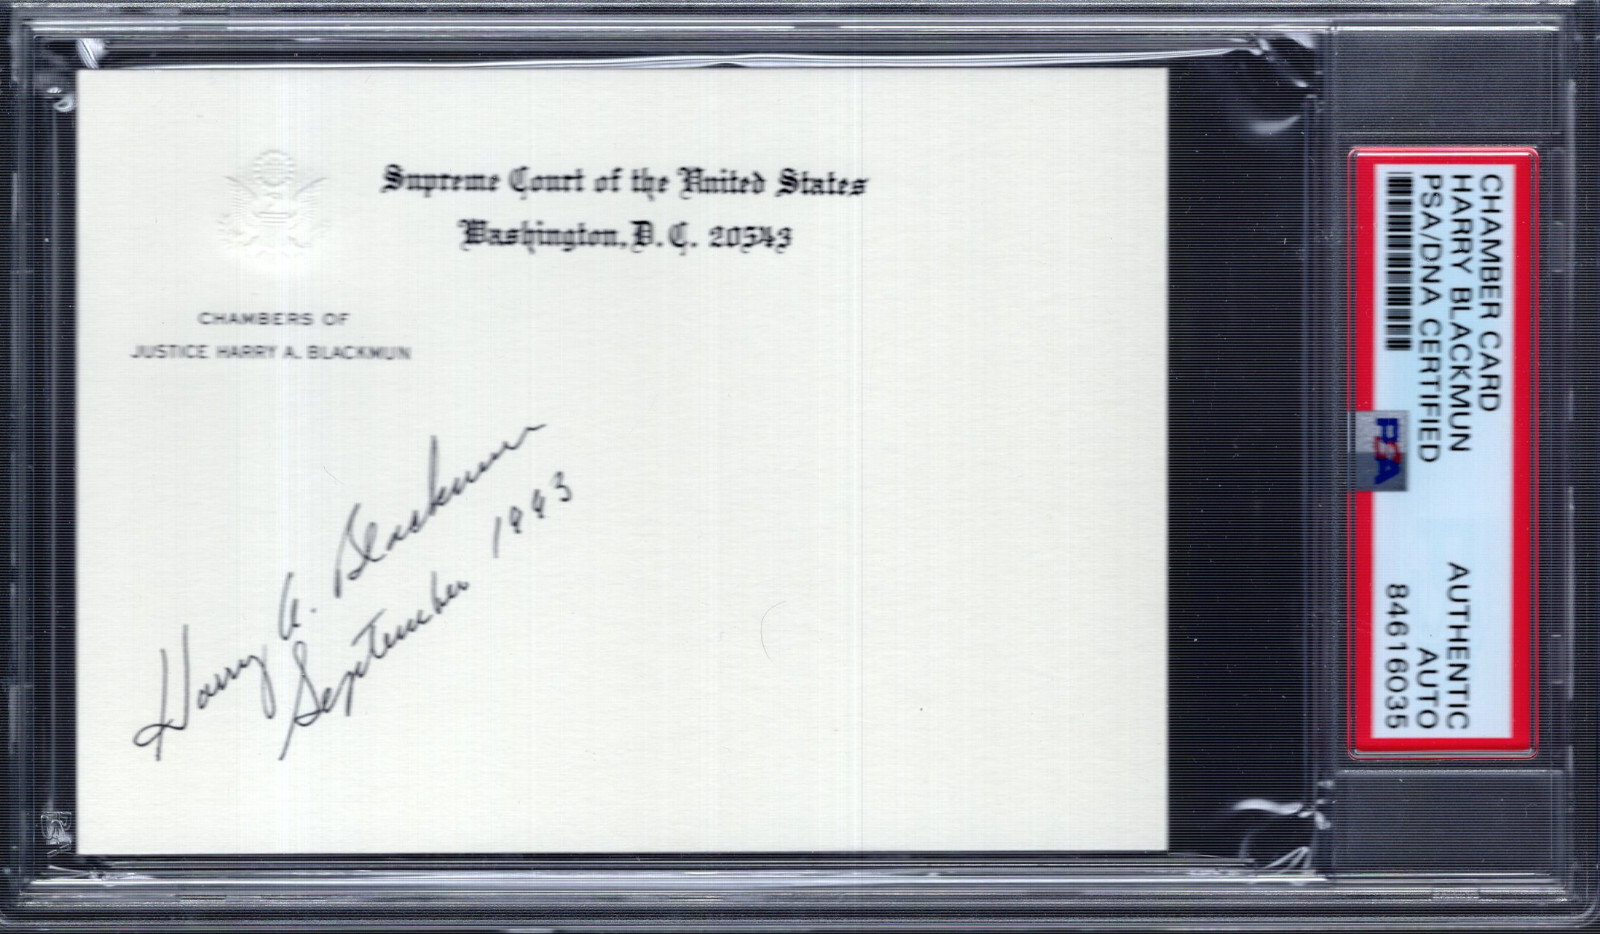 Supreme Court of the United States
Washington, D.C. 20543
CHAMBERS OF
JUSTICE HARRY A. BLACKMUN
Harry A. Blackmun
September 1993
CHAMBER CARD
HARRY BLACKMUN
PSA/DNA CERTIFIED
AUTHENTIC
AUTO
84616035
PSA